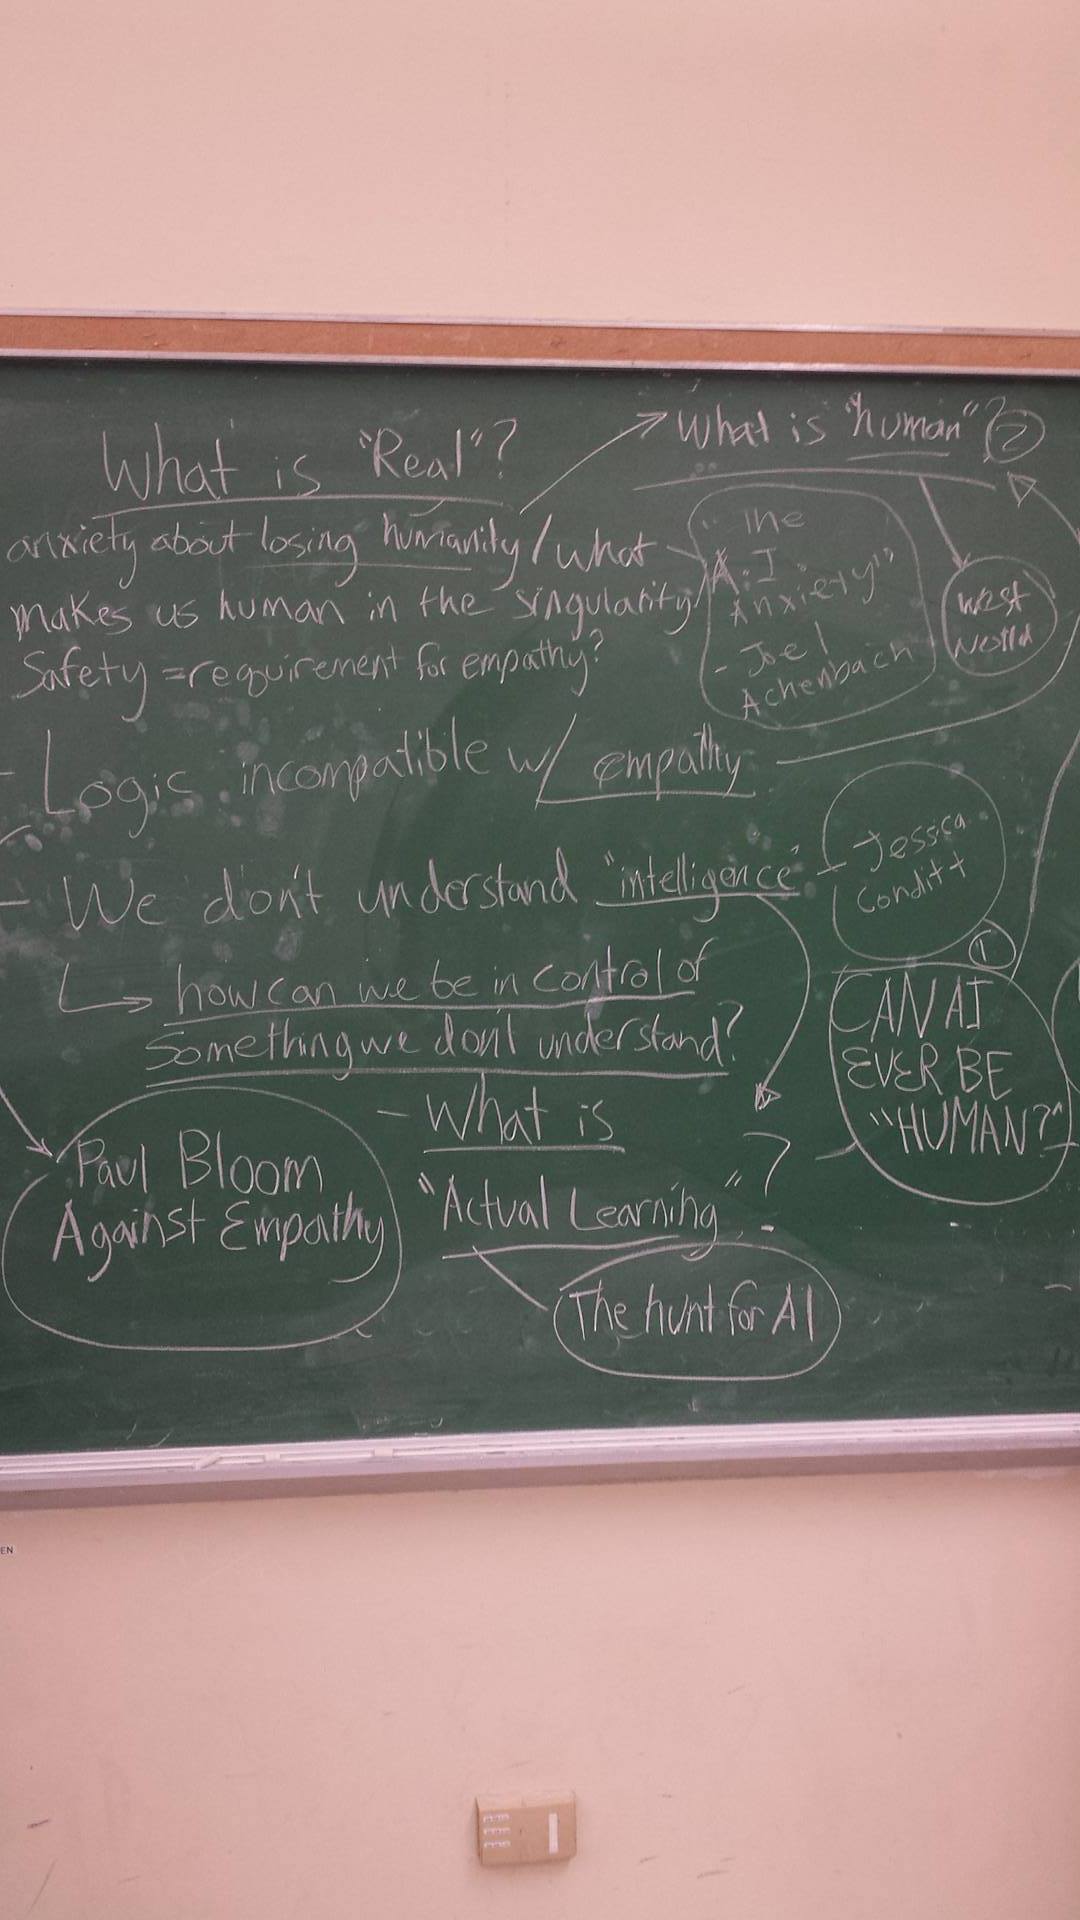 What is "Real"?
What is "human"? 2
anxiety about losing humanity / what
makes us human in the singularity
Safety = requirement for empathy?
"The
A.I
Anxiety"
- Joel
Achenbach
West
World
- Logic incompatible w/ empathy
- We don't understand "intelligence"
Jessica
Conditt
↳ how can we be in control of
something we don't understand?
1
CAN AI
EVER BE
"HUMAN?"
- What is
"Actual Learning"?
Paul Bloom
Against Empathy
The hunt for AI
EN